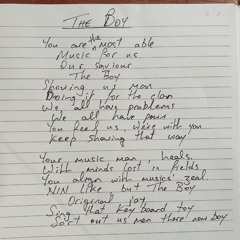 The Boy
You are the most able
Music for us
Our saviour
The Boy
Showing us man
Doing it for the clan
We all have problems
We all have pain
You feel us, we're with you
Keep showing that way
Your music man, heals
With minds lost in fields
You align with musics' zeal
NIN like but The Boy
Original joy
Sing that keyboard toy
Sort out us men there now boy